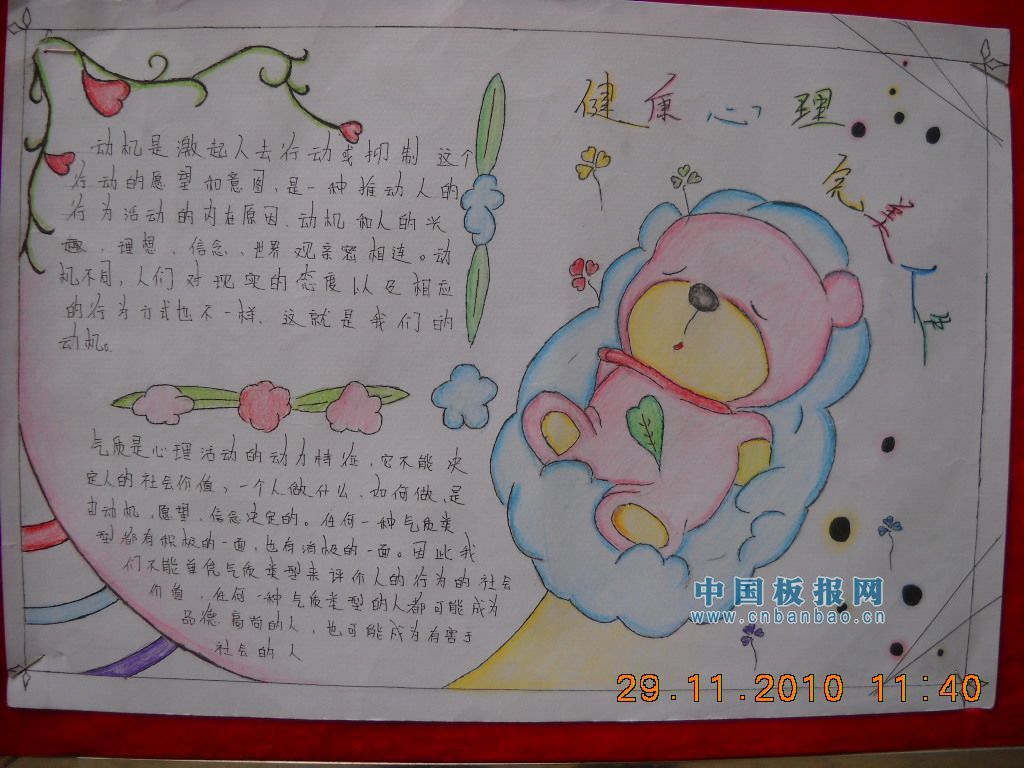 健康心理
完美人生
动机是激起人去行动或抑制这个
行动的愿望和意图,是一种推动人的
行为活动的内在原因.动机和人的兴
趣、理想、信念、世界观亲密相连。动
机不同,人们对现实的态度以及相应
的行为方式也不一样.这就是我们的
动机。
气质是心理活动的动力特征,它不能决
定人的社会价值,一个人做什么、如何做,是
由动机、愿望、信念决定的。任何一种气质类
型都有积极的一面,也有消极的一面。因此我
们不能单凭气质类型来评价人的行为的社会
价值,任何一种气质类型的人都可能成为
品德高尚的人,也可能成为有害于
社会的人
中国板报网
www.cnbanbao.cn
29.11.2010 11:40